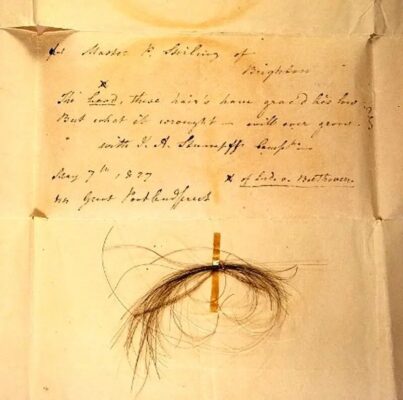 for Master P. Stirling of
Brighton
x
Tho' dead, these hair's have grac'd his brow
But what it wrought — will ever grow.
with J. A. Stumpff's Compts
May 7th 1827 x of Lud. v. Beethoven.
44 Great Portland Street